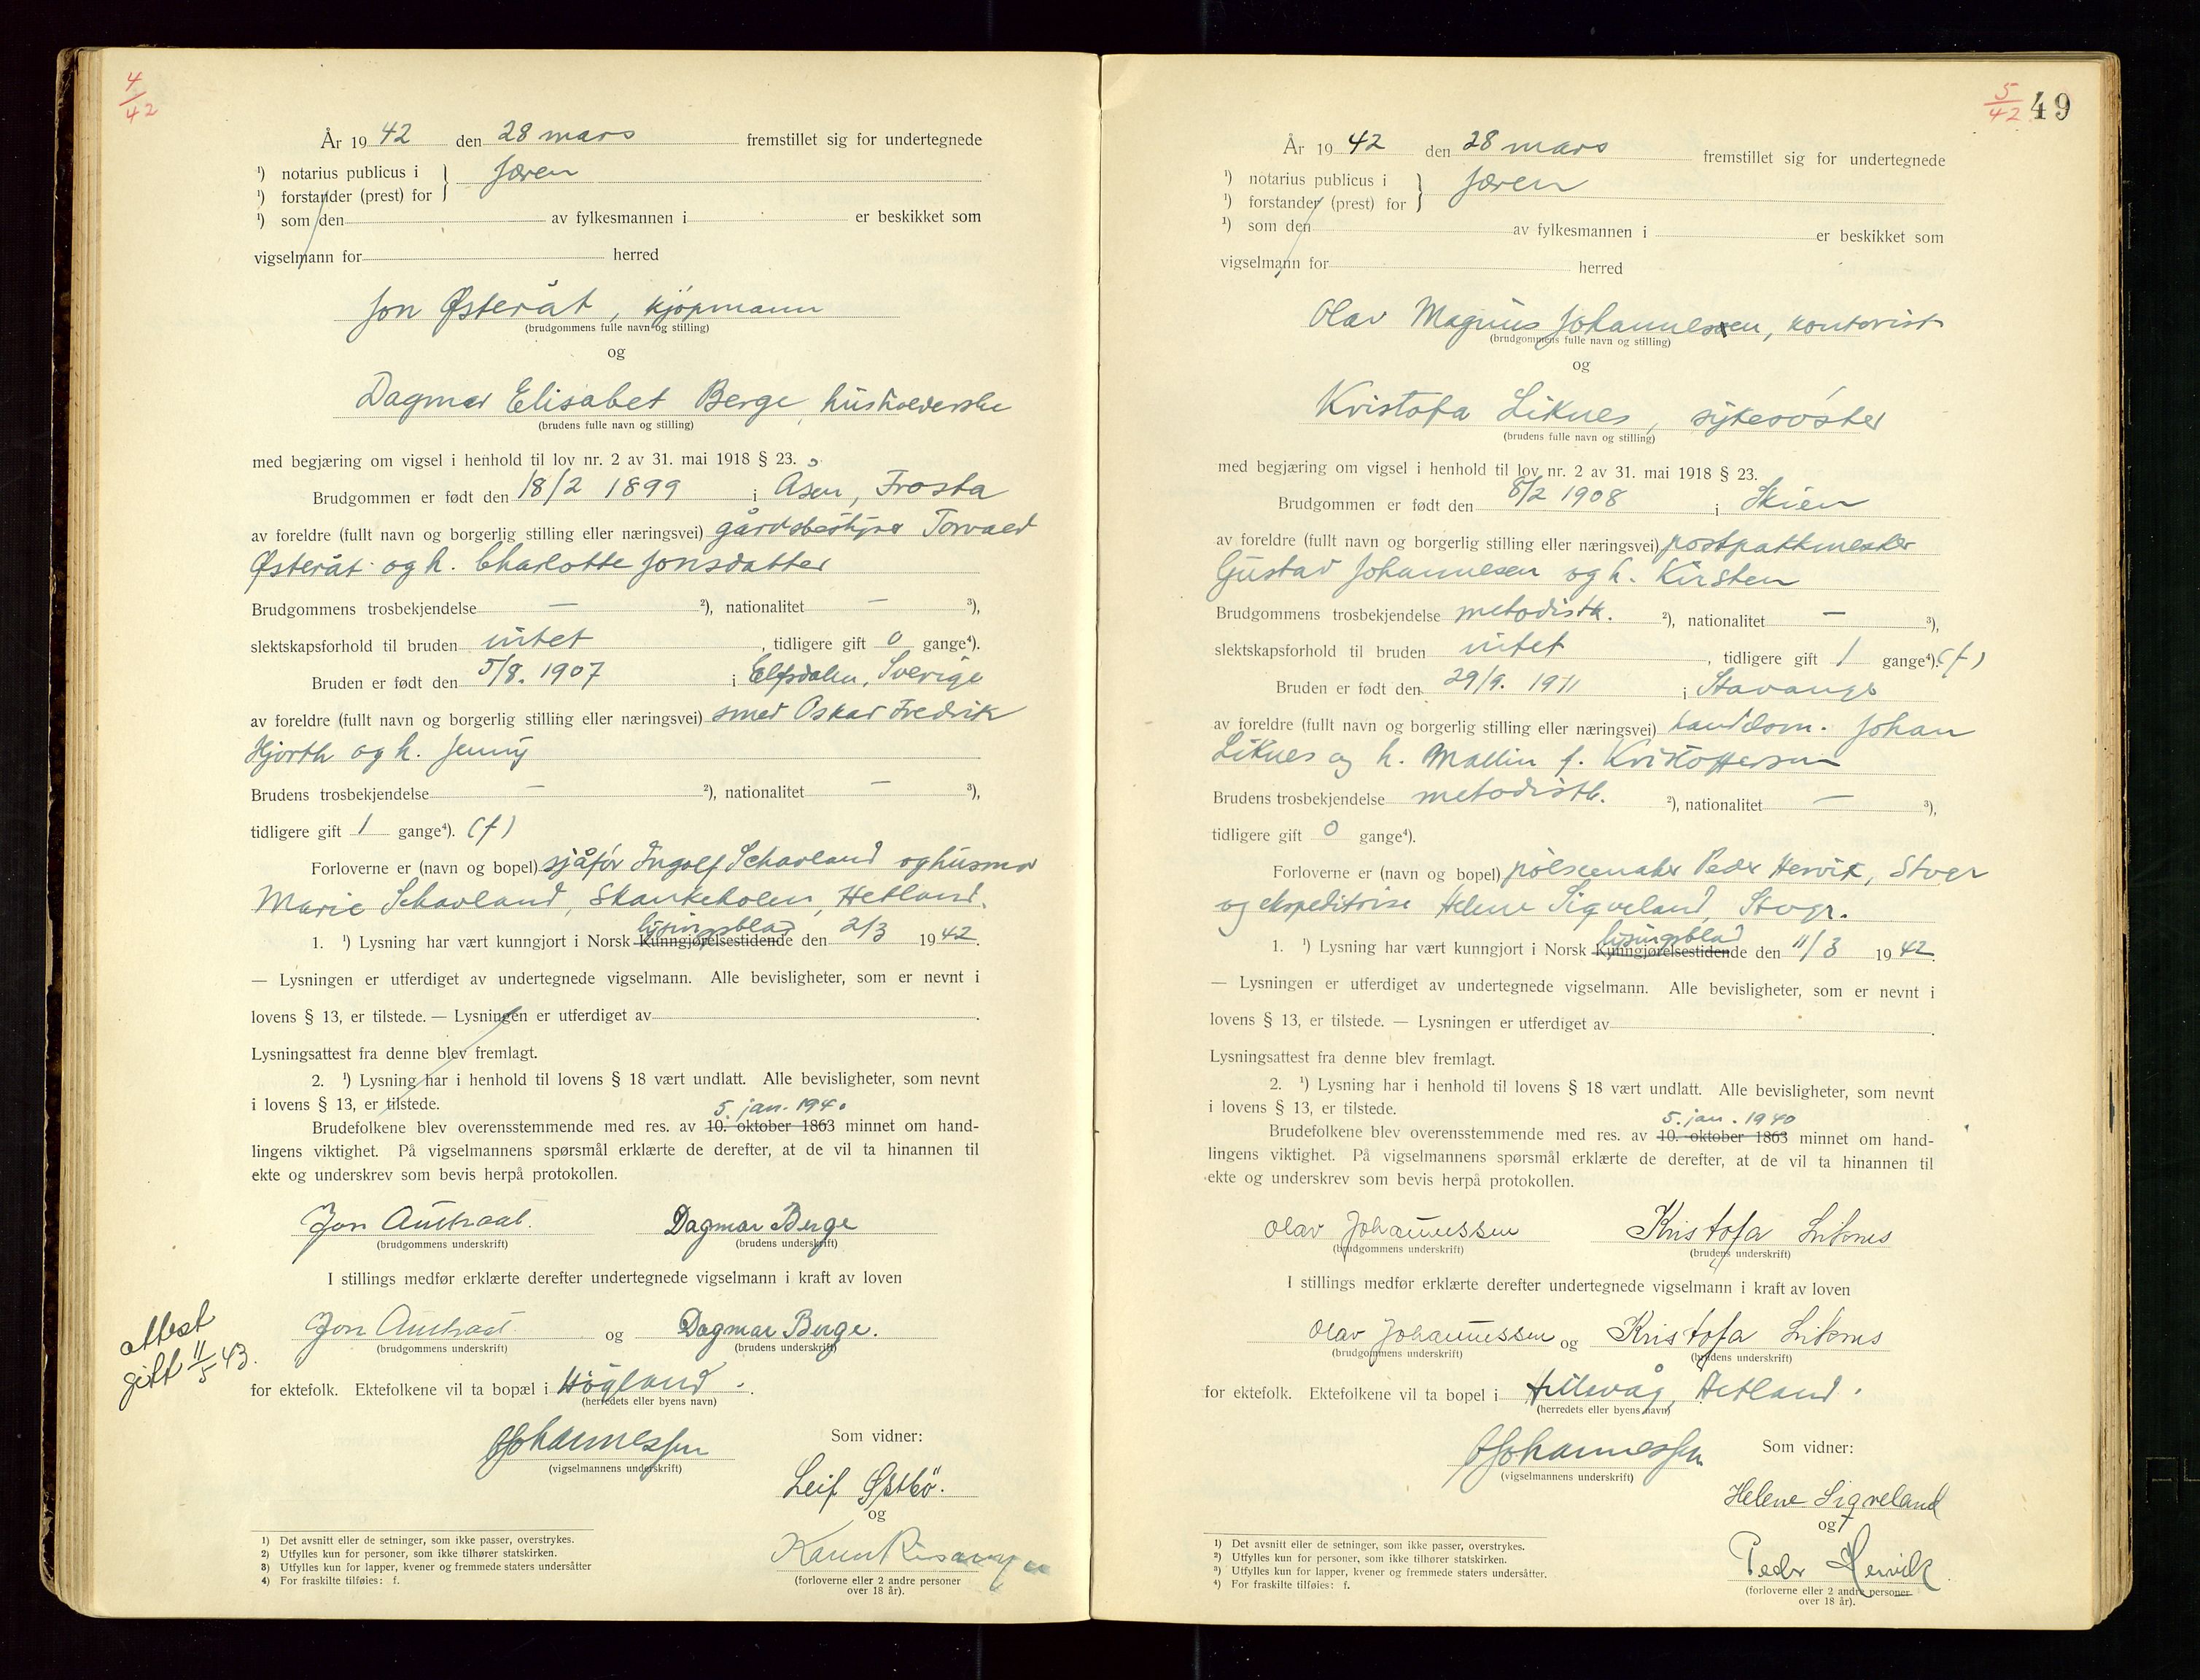 4/42
År 1942 den 28 mars fremstillet sig for undertegnede
¹) notarius publicus i } Jæren
¹) forstander (prest) for
¹) som den av fylkesmannen i er beskikket som
vigselmann for herred
Jon Østeråt, kjøpmann
(brudgommens fulle navn og stilling)
og
Dagmar Elisabet Berge, husholderske
(brudens fulle navn og stilling)
med begjæring om vigsel i henhold til lov nr. 2 av 31. mai 1918 § 23.
Brudgommen er født den 18/2 1899 i Åsen, Frosta
av foreldre (fullt navn og borgerlig stilling eller næringsvei) gårdsbestyrer Torvald
Østeråt og h. Charlotte Jonsdatter
Brudgommens trosbekjendelse — ²), nationalitet — ³),
slektskapsforhold til bruden intet, tidligere gift 0 gange⁴).
Bruden er født den 5/8. 1907 i Elfsdalen, Sverige
av foreldre (fullt navn og borgerlig stilling eller næringsvei) smed Oskar Fredrik
Hjorth og h. Jenny
Brudens trosbekjendelse — ²), nationalitet — ³),
tidligere gift 1 gange⁴). (f)
Forloverne er (navn og bopel) sjåfør Ingolf Scharland og husmor
Marie Scharland, Skankeholen, Hetland.
lysingsblad
1. ¹) Lysning har vært kunngjort i Norsk Kunngjørelsestidende den 2/3 1942.
— Lysningen er utferdiget av undertegnede vigselmann. Alle bevisligheter, som er nevnt i
lovens § 13, er tilstede. — Lysningen er utferdiget av
Lysningsattest fra denne blev fremlagt.
2. ¹) Lysning har i henhold til lovens § 18 vært undlatt. Alle bevisligheter, som nevnt
i lovens § 13, er tilstede.
5. jan. 1940
Brudefolkene blev overensstemmende med res. av 10. oktober 1863 minnet om hand-
lingens viktighet. På vigselmannens spørsmål erklærte de derefter, at de vil ta hinannen til
ekte og underskrev som bevis herpå protokollen.
Jon Austraat. Dagmar Berge
(brudgommens underskrift) (brudens underskrift)
I stillings medfør erklærte derefter undertegnede vigselmann i kraft av loven
Jon Austraat. og Dagmar Berge.
(brudgommens underskrift) (brudens underskrift)
attest
gitt 11/5 43.
for ektefolk. Ektefolkene vil ta bopæl i Høgland.
(herredets eller byens navn)
Johannessen
(vigselmannens underskrift)
Som vidner:
Leif Østbö.
og
Karen
(forloverne eller 2 andre personer
over 18 år).
1) Det avsnitt eller de setninger, som ikke passer, overstrykes.
2) Utfylles kun for personer, som ikke tilhører statskirken.
3) Utfylles kun for lapper, kvener og fremmede staters undersåtter
4) For fraskilte tilføies: f.
5/42 49
År 1942 den 28 mars fremstillet sig for undertegnede
¹) notarius publicus i } Jæren
¹) forstander (prest) for
¹) som den av fylkesmannen i er beskikket som
vigselmann for herred
Olav Magnus Johannesen, kontorist
(brudgommens fulle navn og stilling)
og
Kristofa Liknes, sykesøster
(brudens fulle navn og stilling)
med begjæring om vigsel i henhold til lov nr. 2 av 31. mai 1918 § 23.
Brudgommen er født den 8/2 1908 i Skien
av foreldre (fullt navn og borgerlig stilling eller næringsvei) postpakkmester
Gustav Johannesen og h. Kirsten
Brudgommens trosbekjendelse metodistk. ²), nationalitet — ³),
slektskapsforhold til bruden intet, tidligere gift 1 gange⁴). (f)
Bruden er født den 29/9. 1911 i Stavanger
av foreldre (fullt navn og borgerlig stilling eller næringsvei) handelsm. Johan
Liknes og h. Mallin f. Kristoffersen
Brudens trosbekjendelse metodistk. ²), nationalitet — ³),
tidligere gift 0 gange⁴).
Forloverne er (navn og bopel) pølsemaker Peder Hervik, Stvgr
og ekspeditrise Helene Sigveland, Stvgr.
lysingsblad
1. ¹) Lysning har vært kunngjort i Norsk Kunngjørelsestidende den 11/3 1942.
— Lysningen er utferdiget av undertegnede vigselmann. Alle bevisligheter, som er nevnt i
lovens § 13, er tilstede. — Lysningen er utferdiget av
Lysningsattest fra denne blev fremlagt.
2. ¹) Lysning har i henhold til lovens § 18 vært undlatt. Alle bevisligheter, som nevnt
i lovens § 13, er tilstede.
5. jan. 1940
Brudefolkene blev overensstemmende med res. av 10. oktober 1863 minnet om hand-
lingens viktighet. På vigselmannens spørsmål erklærte de derefter, at de vil ta hinannen til
ekte og underskrev som bevis herpå protokollen.
Olav Johannessen Kristofa Liknes
(brudgommens underskrift) (brudens underskrift)
I stillings medfør erklærte derefter undertegnede vigselmann i kraft av loven
Olav Johannessen og Kristofa Liknes
(brudgommens underskrift) (brudens underskrift)
for ektefolk. Ektefolkene vil ta bopel i Hillevåg, Hetland.
(herredets eller byens navn)
Johannessen
(vigselmannens underskrift)
Som vidner:
Helene Sigveland
og
Peder Hervik
(forloverne eller 2 andre personer
over 18 år).
¹) Det avsnitt eller de setninger, som ikke passer, overstrykes.
²) Utfylles kun for personer, som ikke tilhører statskirken.
³) Utfylles kun for lapper, kvener og fremmede staters undersåtter.
⁴) For fraskilte tilføies: f.